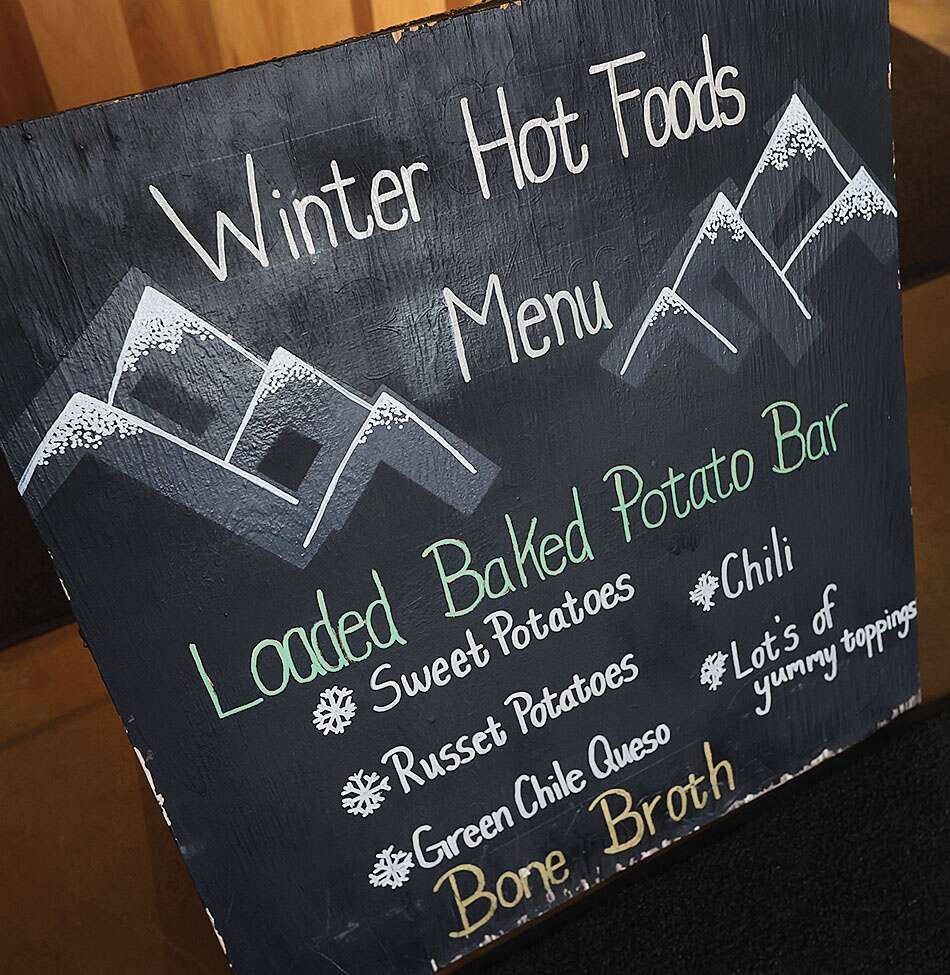 Winter Hot Foods
Menu
Loaded Baked Potato Bar
Sweet Potatoes
Russet Potatoes
Green Chile Queso
Chili
Lot's of
yummy toppings
Bone Broth